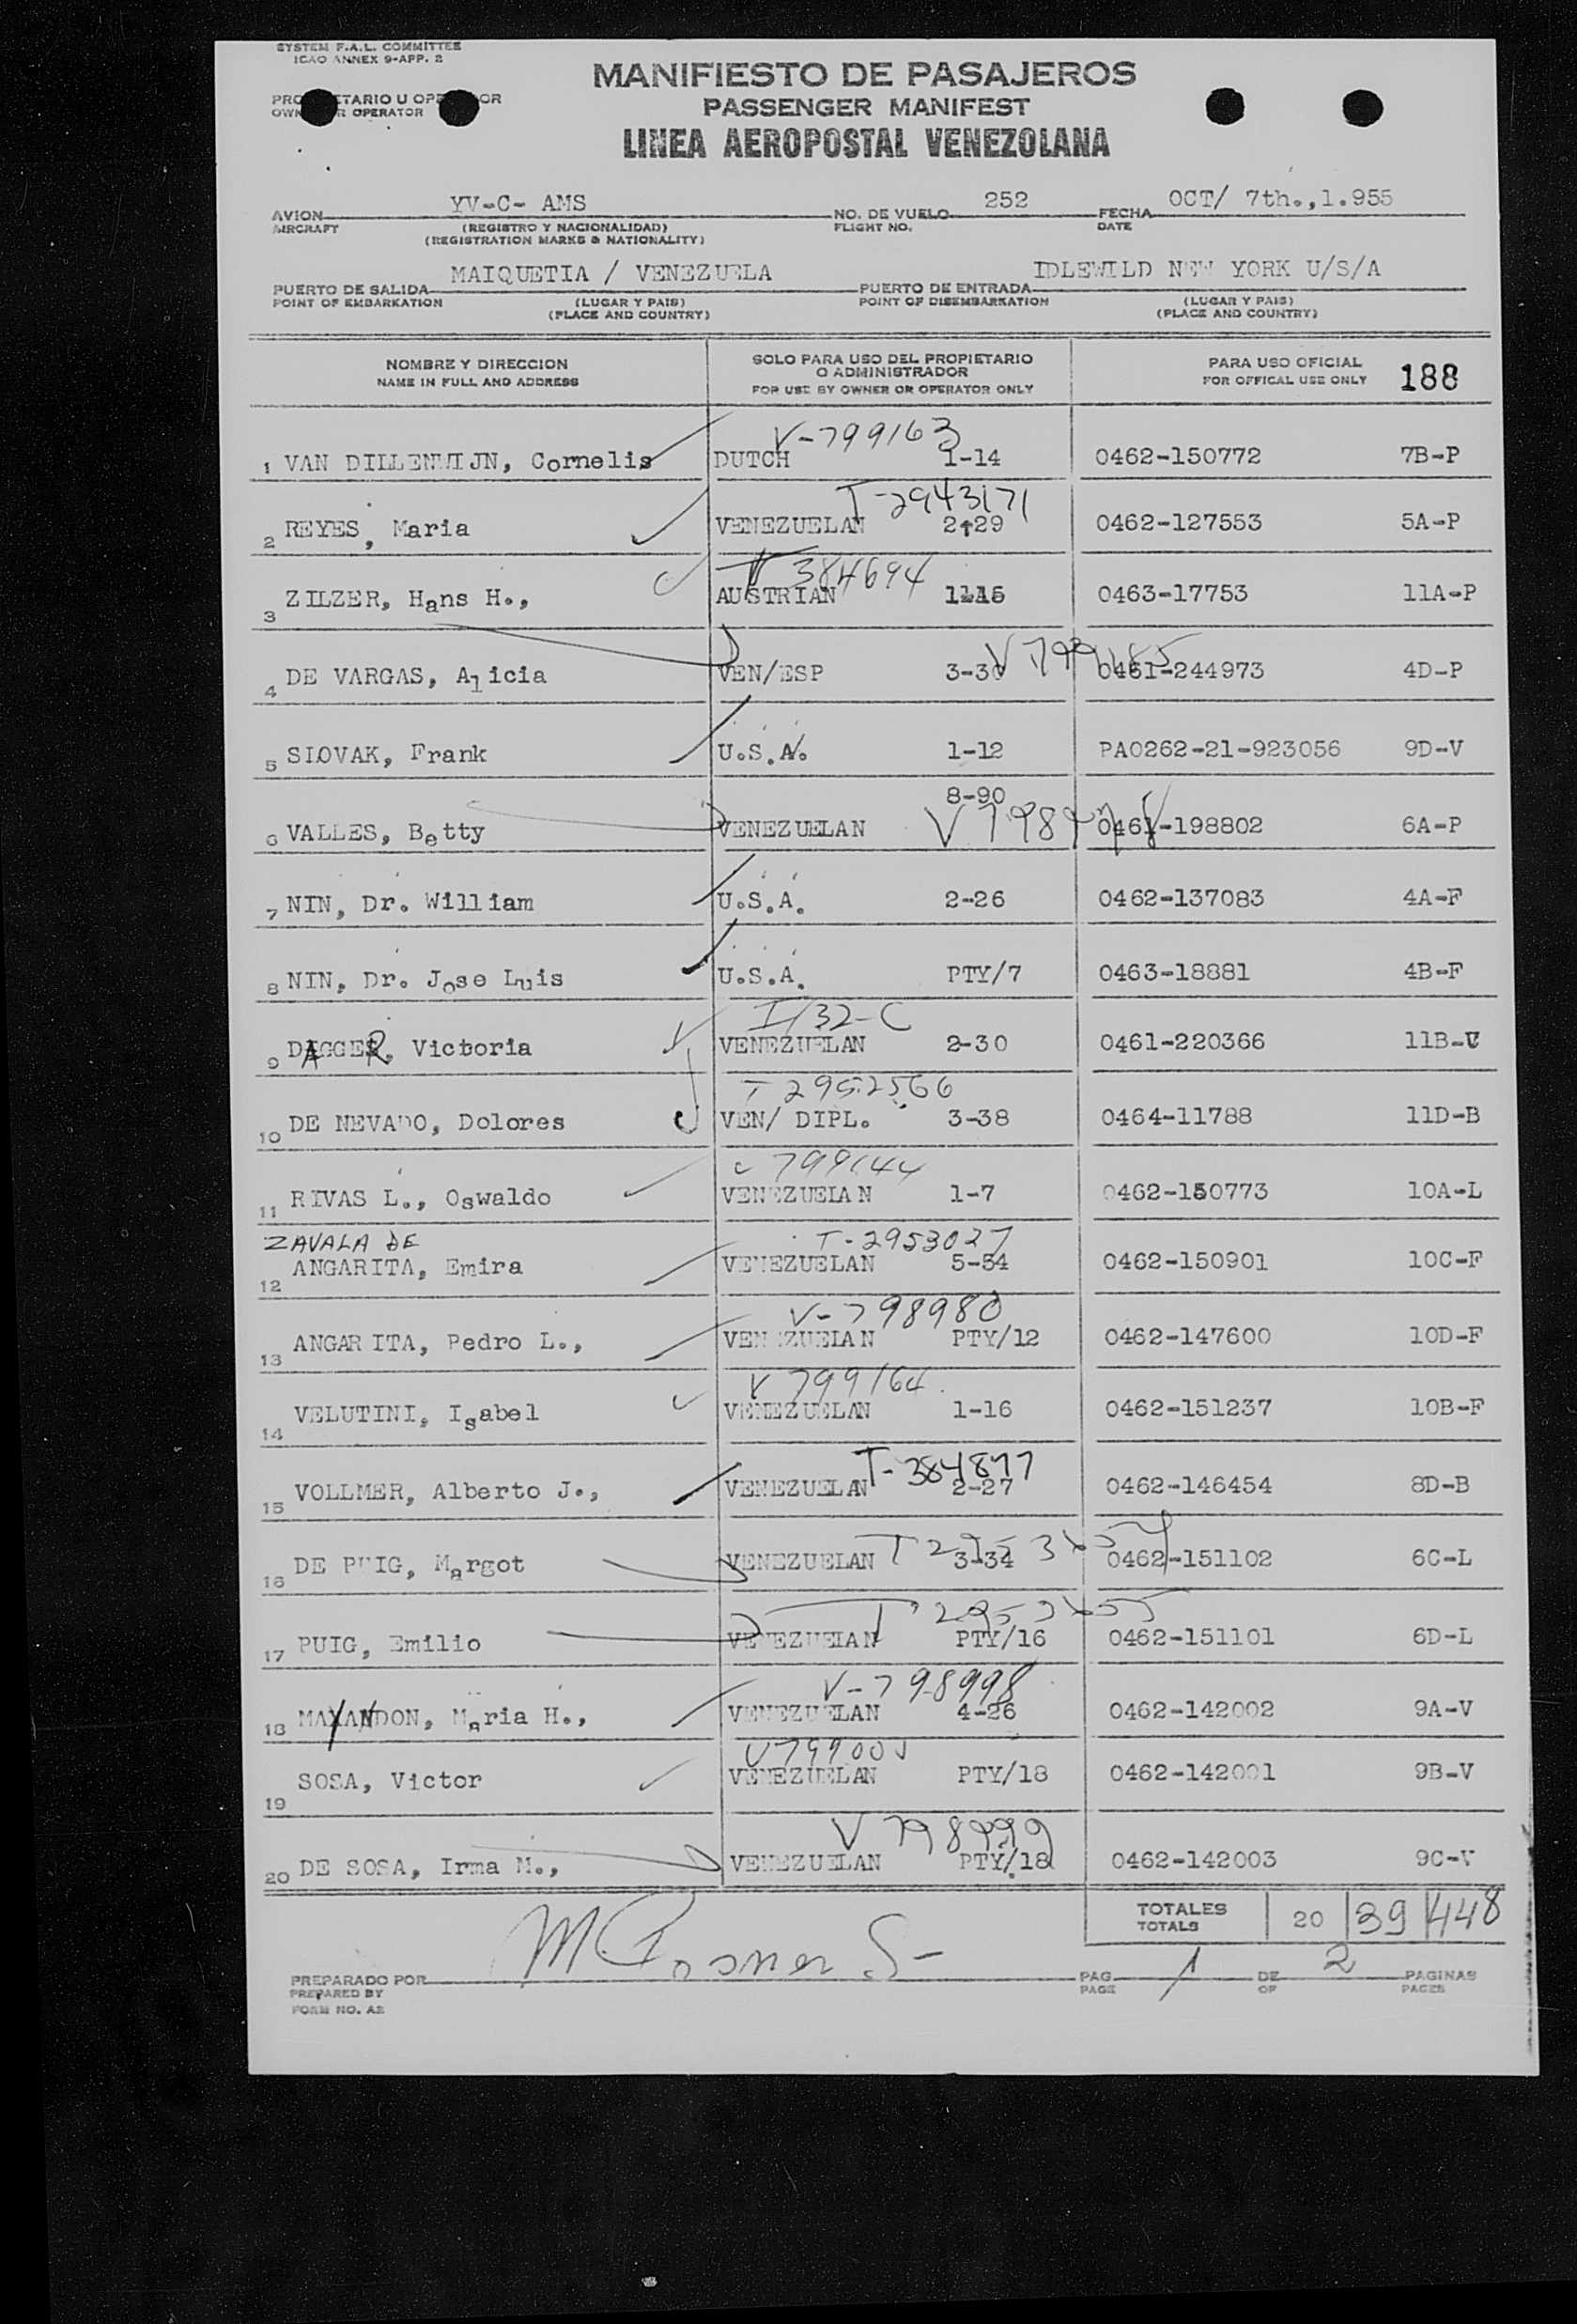 SYSTEM F.A.L. COMMITTEE
ICAO ANNEX 9-APP. 2
MANIFIESTO DE PASAJEROS
PASSENGER MANIFEST
LINEA AEROPOSTAL VENEZOLANA
AVION YV-C- AMS NO. DE VUELO 252 FECHA OCT/ 7th.,1.955
AIRCRAFT (REGISTRO Y NACIONALIDAD) FLIGHT NO. DATE
(REGISTRATION MARKS & NATIONALITY)
PUERTO DE SALIDA MAIQUETIA / VENEZUELA PUERTO DE ENTRADA IDLEWILD NEW YORK U/S/A
POINT OF EMBARKATION (LUGAR Y PAIS) POINT OF DISEMBARKATION (LUGAR Y PAIS)
(PLACE AND COUNTRY) (PLACE AND COUNTRY)
NOMBRE Y DIRECCION SOLO PARA USO DEL PROPIETARIO O ADMINISTRADOR PARA USO OFICIAL 188
NAME IN FULL AND ADDRESS FOR USE BY OWNER OR OPERATOR ONLY FOR OFFICAL USE ONLY
V-799163
1 VAN DILLENWIJN, Cornelis DUTCH 1-14 0462-150772 7B-P
T-2943171
2 REYES, Maria VENEZUELAN 2-29 0462-127553 5A-P
384694
3 ZILZER, Hans H., AUSTRIAN 0463-17753 11A-P
4 DE VARGAS, Alicia VEN/ESP 3-30 0461-244973 4D-P
5 SLOVAK, Frank U.S.A. 1-12 PA0262-21-923056 9D-V
8-90
6 VALLES, Betty VENEZUELAN 0461-198802 6A-P
7 NIN, Dr. William U.S.A. 2-26 0462-137083 4A-F
8 NIN, Dr. Jose Luis U.S.A. PTY/7 0463-18881 4B-F
I/32-C
9 DAGGER, Victoria VENEZUELAN 2-30 0461-220366 11B-V
T 2952566
10 DE NEVADO, Dolores VEN/ DIPL. 3-38 0464-11788 11D-B
799144
11 RIVAS L., Oswaldo VENEZUELAN 1-7 0462-150773 10A-L
ZAVALA DE T-2953027
12 ANGARITA, Emira VENEZUELAN 5-54 0462-150901 10C-F
V-798980
13 ANGARITA, Pedro L., VENEZUELAN PTY/12 0462-147600 10D-F
V 799164
14 VELUTINI, Isabel VENEZUELAN 1-16 0462-151237 10B-F
T-384877
15 VOLLMER, Alberto J., VENEZUELAN 2-27 0462-146454 8D-B
16 DE PUIG, Margot VENEZUELAN 3-34 0462-151102 6C-L
17 PUIG, Emilio VENEZUELAN PTY/16 0462-151101 6D-L
V-798998
18 Maria H., VENEZUELAN 4-26 0462-142002 9A-V
19 SOSA, Victor VENEZUELAN PTY/18 0462-142001 9B-V
V 798999
20 DE SOSA, Irma M., VENEZUELAN PTY/18 0462-142003 9C-V
TOTALES 20 39 448
TOTALS
PREPARADO POR PAG 1 DE 2 PAGINAS
PREPARED BY PAGE OF PAGES
FORM NO. A2